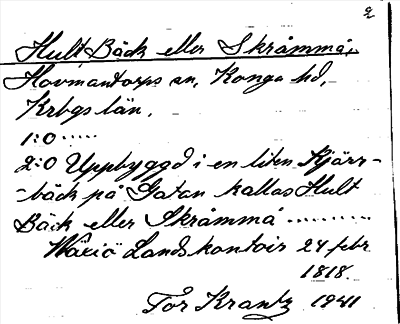 2
Hult, Bäck eller Skråmmå,
Hovmantorps sn, Konga hd,
Krbgs län,
1:0 .....
2:0 Uppbyggd i en liten Kjärr-
-bäck på Gatan kallas Hult
Bäck eller Skråmmå ..........
Wäxiö Landskontoir 24 febr
1818.
Tor Krantz 1941